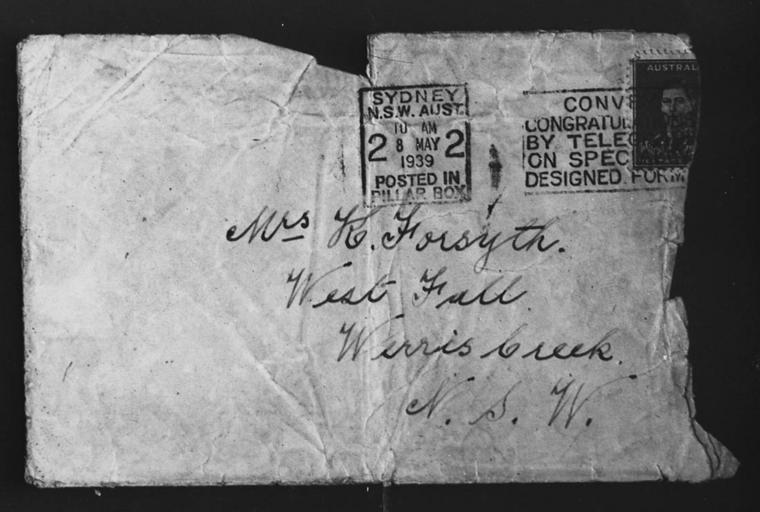 SYDNEY
N.S.W. AUST.
10 AM
2 8 MAY 2
1939
POSTED IN
PILLAR BOX
CONVE
CONGRATUL
BY TELEG
ON SPEC
DESIGNED FORM
AUSTRAL
Mrs K. Forsyth.
West Fall
Werris Creek.
N. S. W.